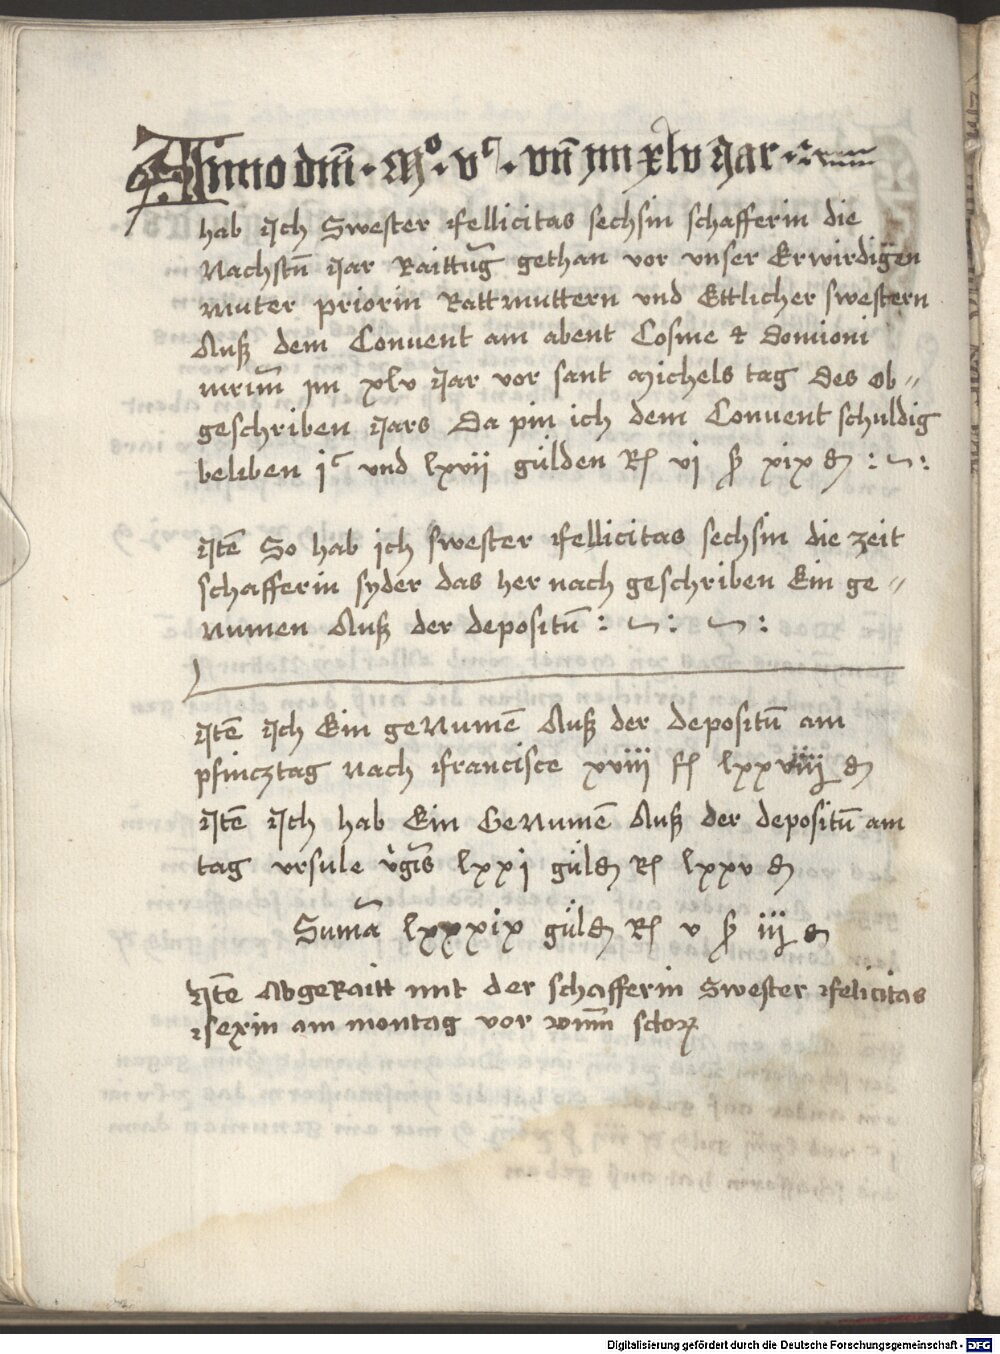 Anno dm̄ · Mº · vᶜ · vn̄ ym xlv Jar
hab Jch Swester Fellicitas sechsin schafferin die
Nachstn̄ Jar Raittūg gethan vor vnser Erwirdigen
muter priorin Rattmuttern vnd Ettlicher swestern
Auß dem Convent am abent Cosme & domioni
mrim̄ jm xlv Jar vor sant Michels tag des ob〃
geschriben Jars Da pin ich dem Convent schuldig
beliben jᶜ vnd lxvij gulden R vj ß xix d :~:
Jtē So hab ich swester Fellicitas sechsin die zeit
schafferin syder das her nach geschriben Ein ge〃
numen Auß der depositū : ~ : ~ :
Jtē Jch Ein geNumē Auß der depositū am
pfincztag Nach Francisce xviij fl lxxviiij d
Jtē Jch hab Ein GeNumē Auß der depositū am
tag vrsule v̓gīs lxxj guld R lxxv d
Sumā lxxxix guld R v ß iij d
Jtē AbgeRaitt mit der schafferin Swester Felicitas
sexin am montag vor om̄m sctoꝝ
Digitalisierung gefördert durch die Deutsche Forschungsgemeinschaft - DFG